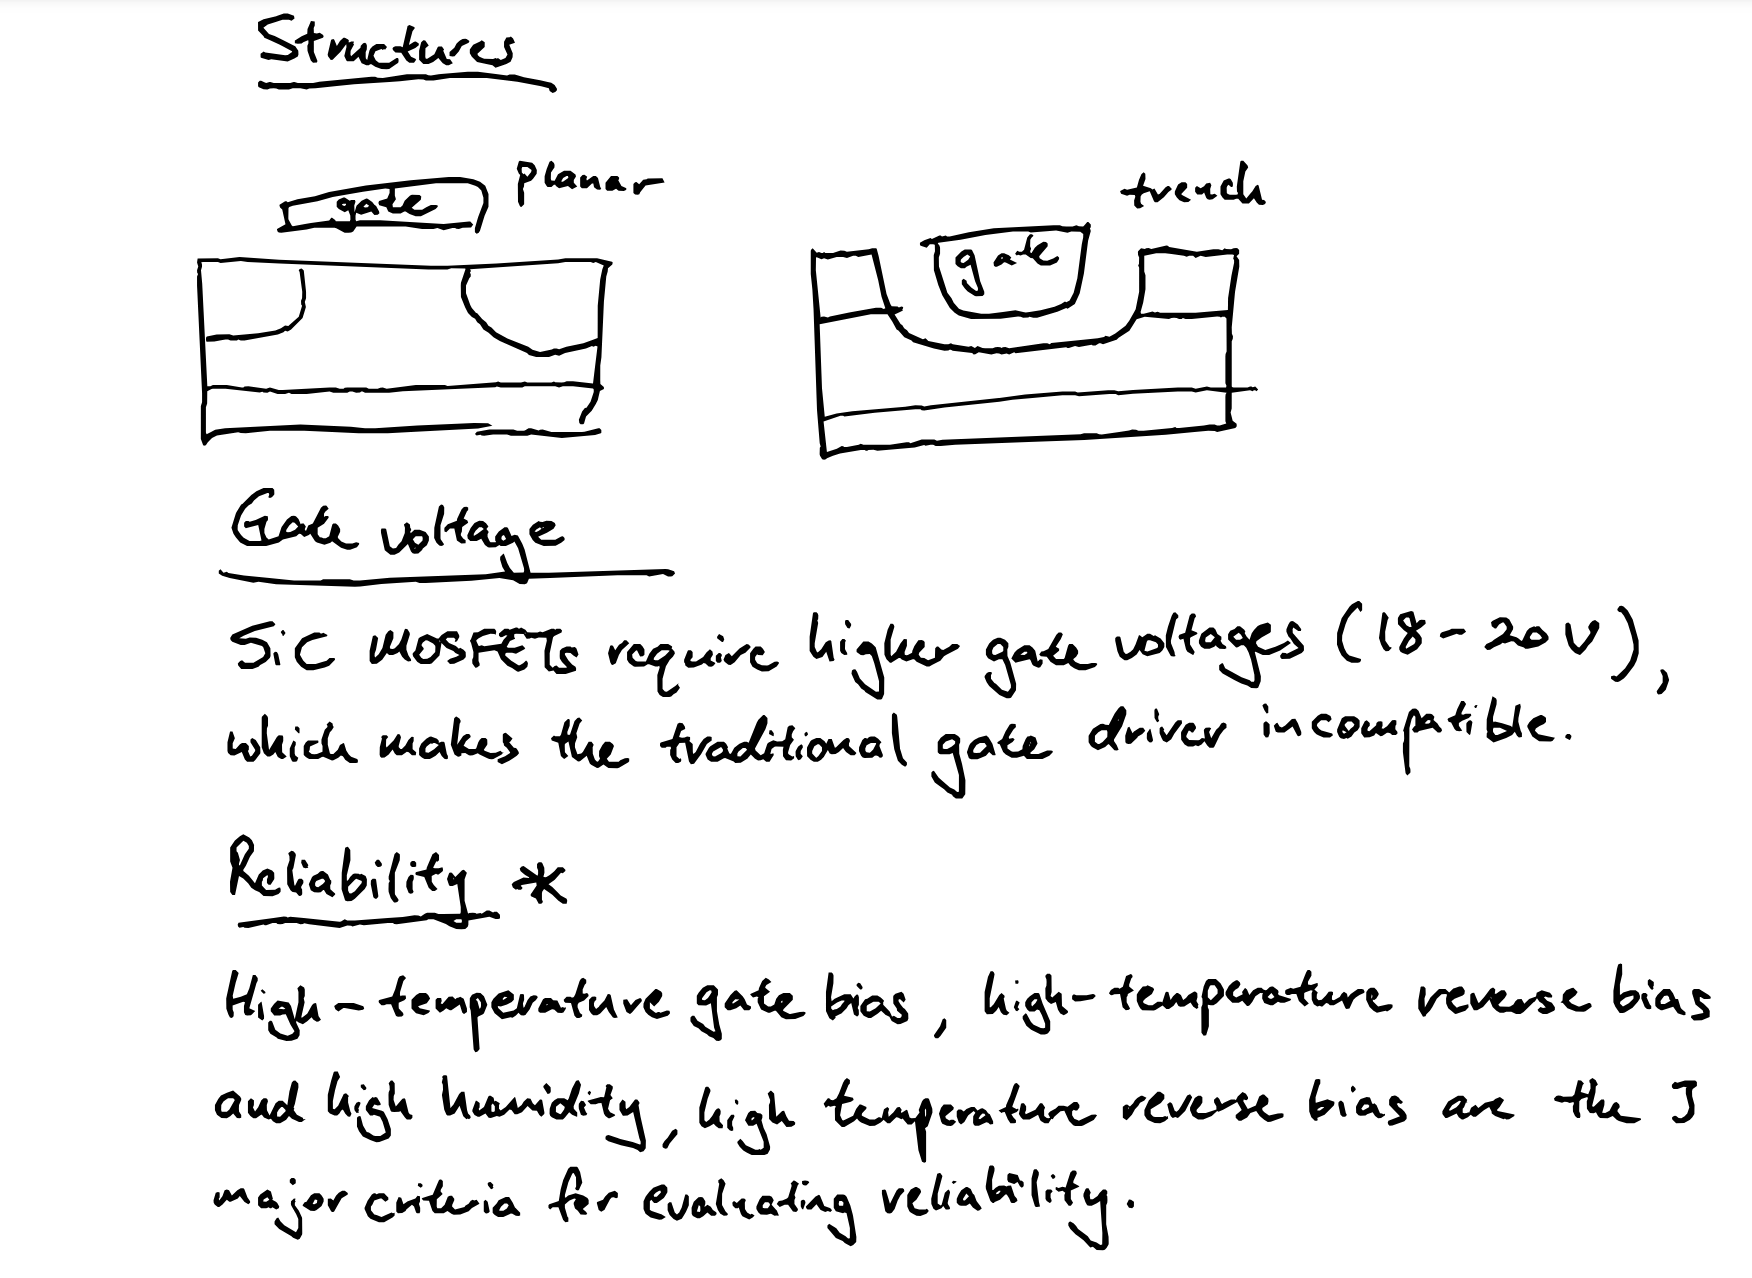 Structures
planar
gate
trench
gate
Gate voltage
SiC MOSFETs require higher gate voltages (18-20V),
which makes the traditional gate driver incompatible.
Reliability *
High-temperature gate bias, high-temperature reverse bias
and high humidity, high temperature reverse bias are the 3
major criteria for evaluating reliability.